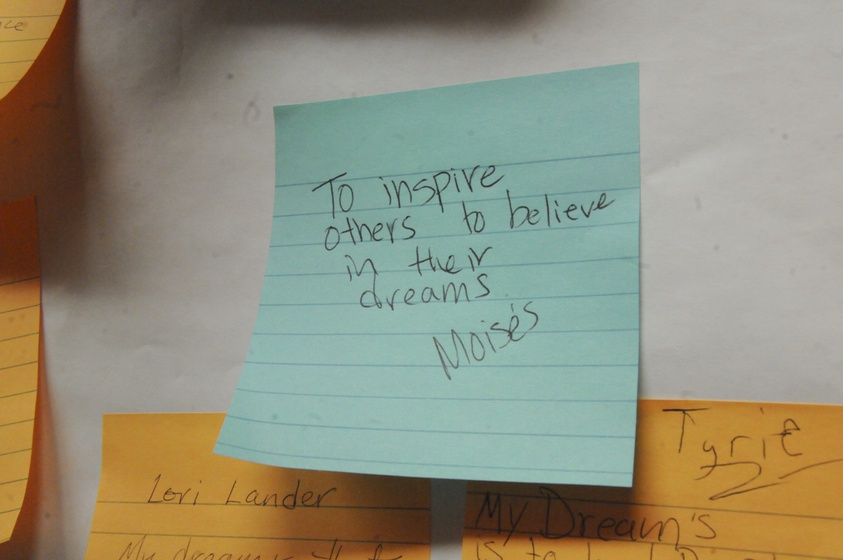 To inspire
others to believe
in their
dreams
Moisés
Lori Lander
My dream is that
Tyrie
My Dream's
is to